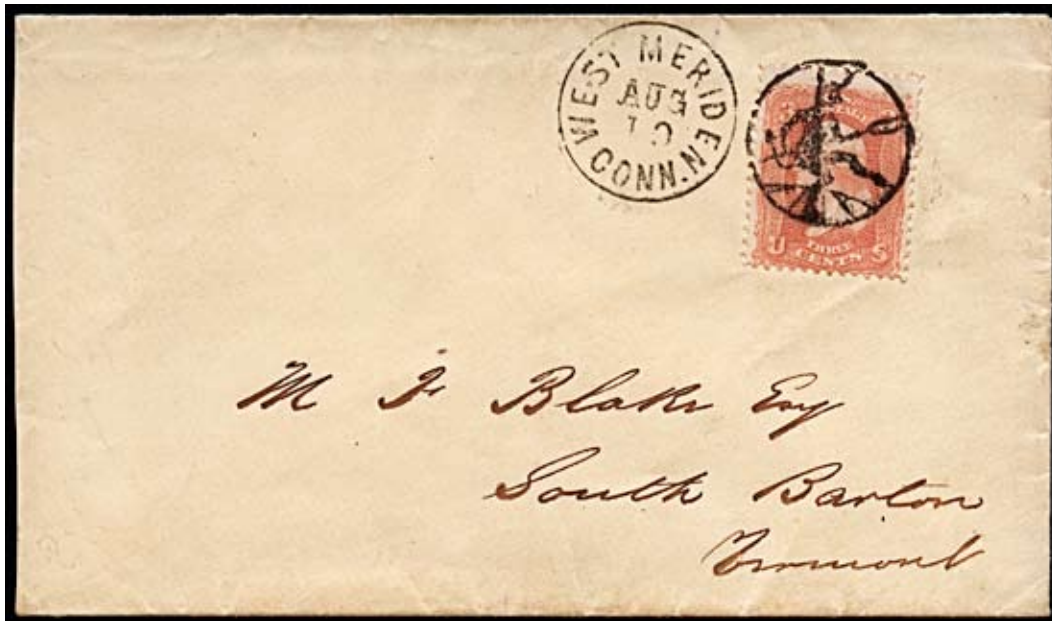 WEST MERIDEN
AUG
CONN.
U THREE S
CENTS
M F Blake Esq
South Barton
Vermont